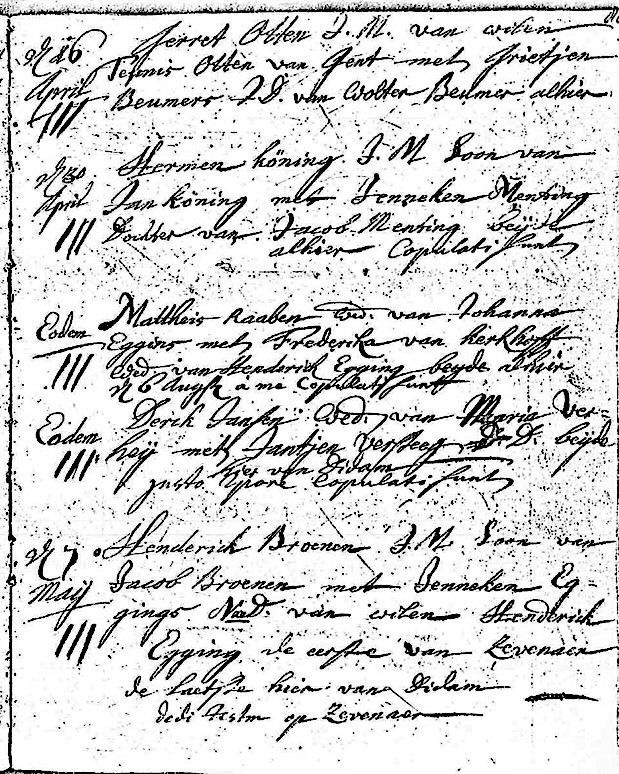 d 16 Jerret Otten J. M. van wilen
April Teunis Otten van Gent met Grietjen
Beumers J D. van Wolter Beumer alhier.
d 30 Hermen köning J. M Soon van
April Jan köning met Jenneken Menting
Dochter van Jacob Menting beÿde
alhier Copulati sunt
Eodem Mattheis Raaben Wed. van Johanna
Eggens met Frederika van kerkhoff
Wed. van Henderick Egging beyde alhier
d 6 Augst a me Copulati sunt
Eodem Derck Jansen Wed. van Maria Ver-
heij met Jantjen Versteeg J. D. beyde
hier van Didam
justo tpore Copulati sunt
d 7 Henderick Broenen J. M. Soon van
Maij Jacob Broenen met Jenneken Eg-
gings Nad. van wilen Henderick
Egging de eerste van Zevenaer
de laetste hier van Didam
dedi testm op Zevenaer